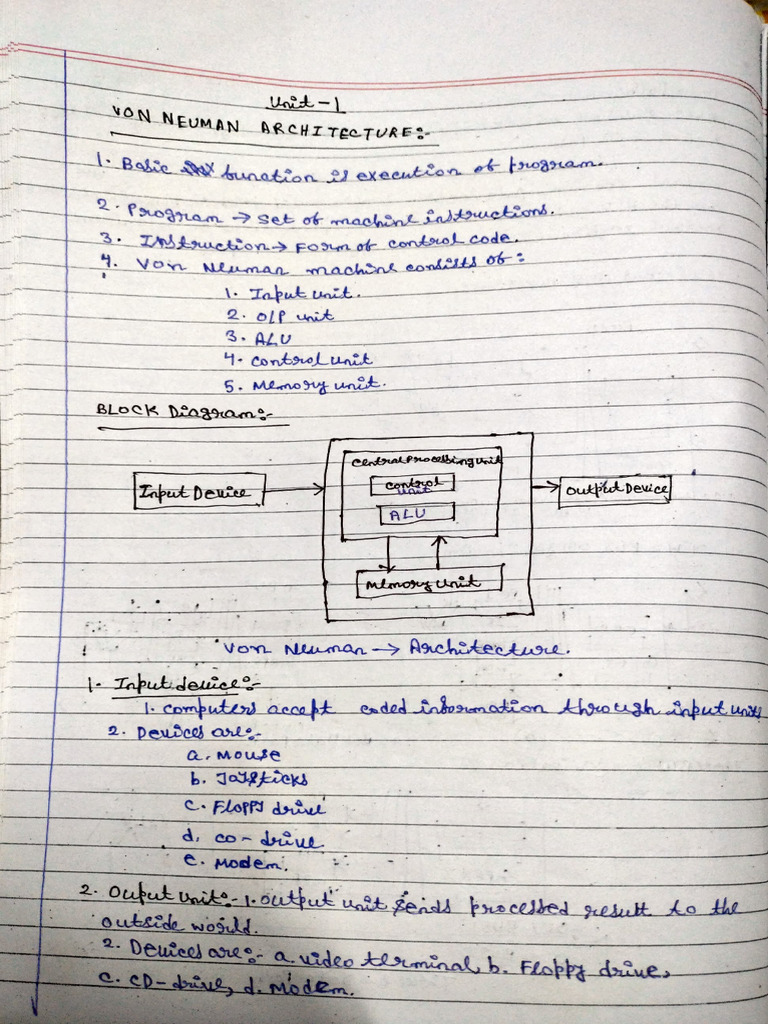 Unit - 1
VON NEUMAN ARCHITECTURE:-
1. Basic function is execution of program.
2. Program → Set of machine instructions.
3. Instruction → Form of control code.
4. Von Neuman machine consists of:
1. Input unit.
2. O/P unit
3. ALU
4. control unit
5. Memory unit.
BLOCK Diagram:-
Central Processing Unit
Input Device
Control
Unit
Output Device
ALU
Memory Unit
Von Neuman → Architecture.
1. Input device:-
1. computers accept coded information through input units
2. Devices are:-
a. Mouse
b. Joysticks
c. Floppy drive
d. CD - drive
e. Modem.
2. Ouput Unit:- 1. output unit sends processed result to the
outside world.
2. Devices are:- a. video terminal, b. Floppy drive,
c. CD-drive, d. Modem.